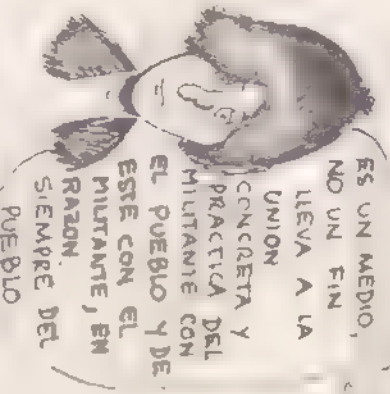 ES UN MEDIO,
NO UN FIN
LLEVA A LA
UNION
CONCRETA Y
PRACTICA DEL
MILITANTE CON
EL PUEBLO Y DE
ESTE CON EL
MILITANTE, EN
RAZON
SIEMPRE DEL
PUEBLO